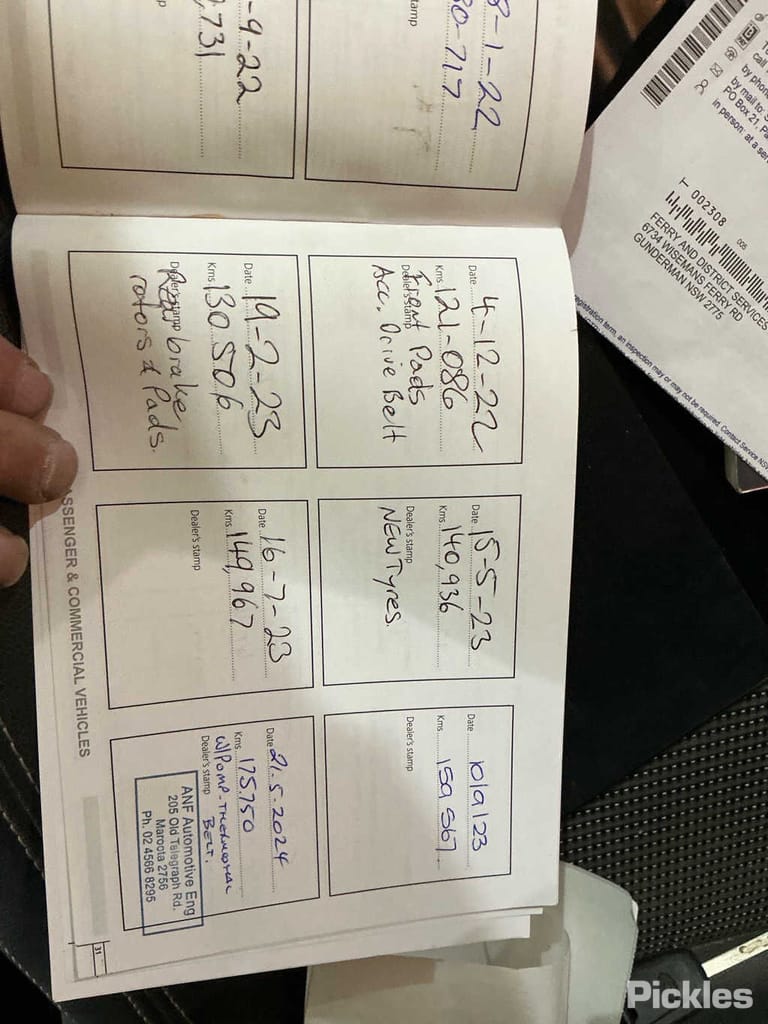 8-1-22
30-717
stamp
-9-22
,731
stamp
Date 4-12-22
Kms 121-086
Dealer's stamp
Front Pads
Acc. Drive Belt
Date 19-2-23
Kms 130 506
Dealer's stamp
Rear brake
rotors & Pads.
Date 15-5-23
Kms 140,936
Dealer's stamp
NEW Tyres.
Date 16-7-23
Kms 149,967
Dealer's stamp
Date 10/9/23
Kms 159 567
Dealer's stamp
Date 21.5.2024
Kms 175.750
Dealer's stamp
W/PUMP-THERMOSTAL
BELT.
ANF Automotive Eng
205 Old Telegraph Rd.
Maroota 2756
Ph. 02 4566 8295
ASSENGER & COMMERCIAL VEHICLES
31
call
by phone
by mail to: S
PO Box 21, Pa
in person: at a ser
T 002308
005
FERRY AND DISTRICT SERVICES
6734 WISEMANS FERRY RD
GUNDERMAN NSW 2775
registration form, an inspection may or may not be required. Contact Service NSW
Pickles